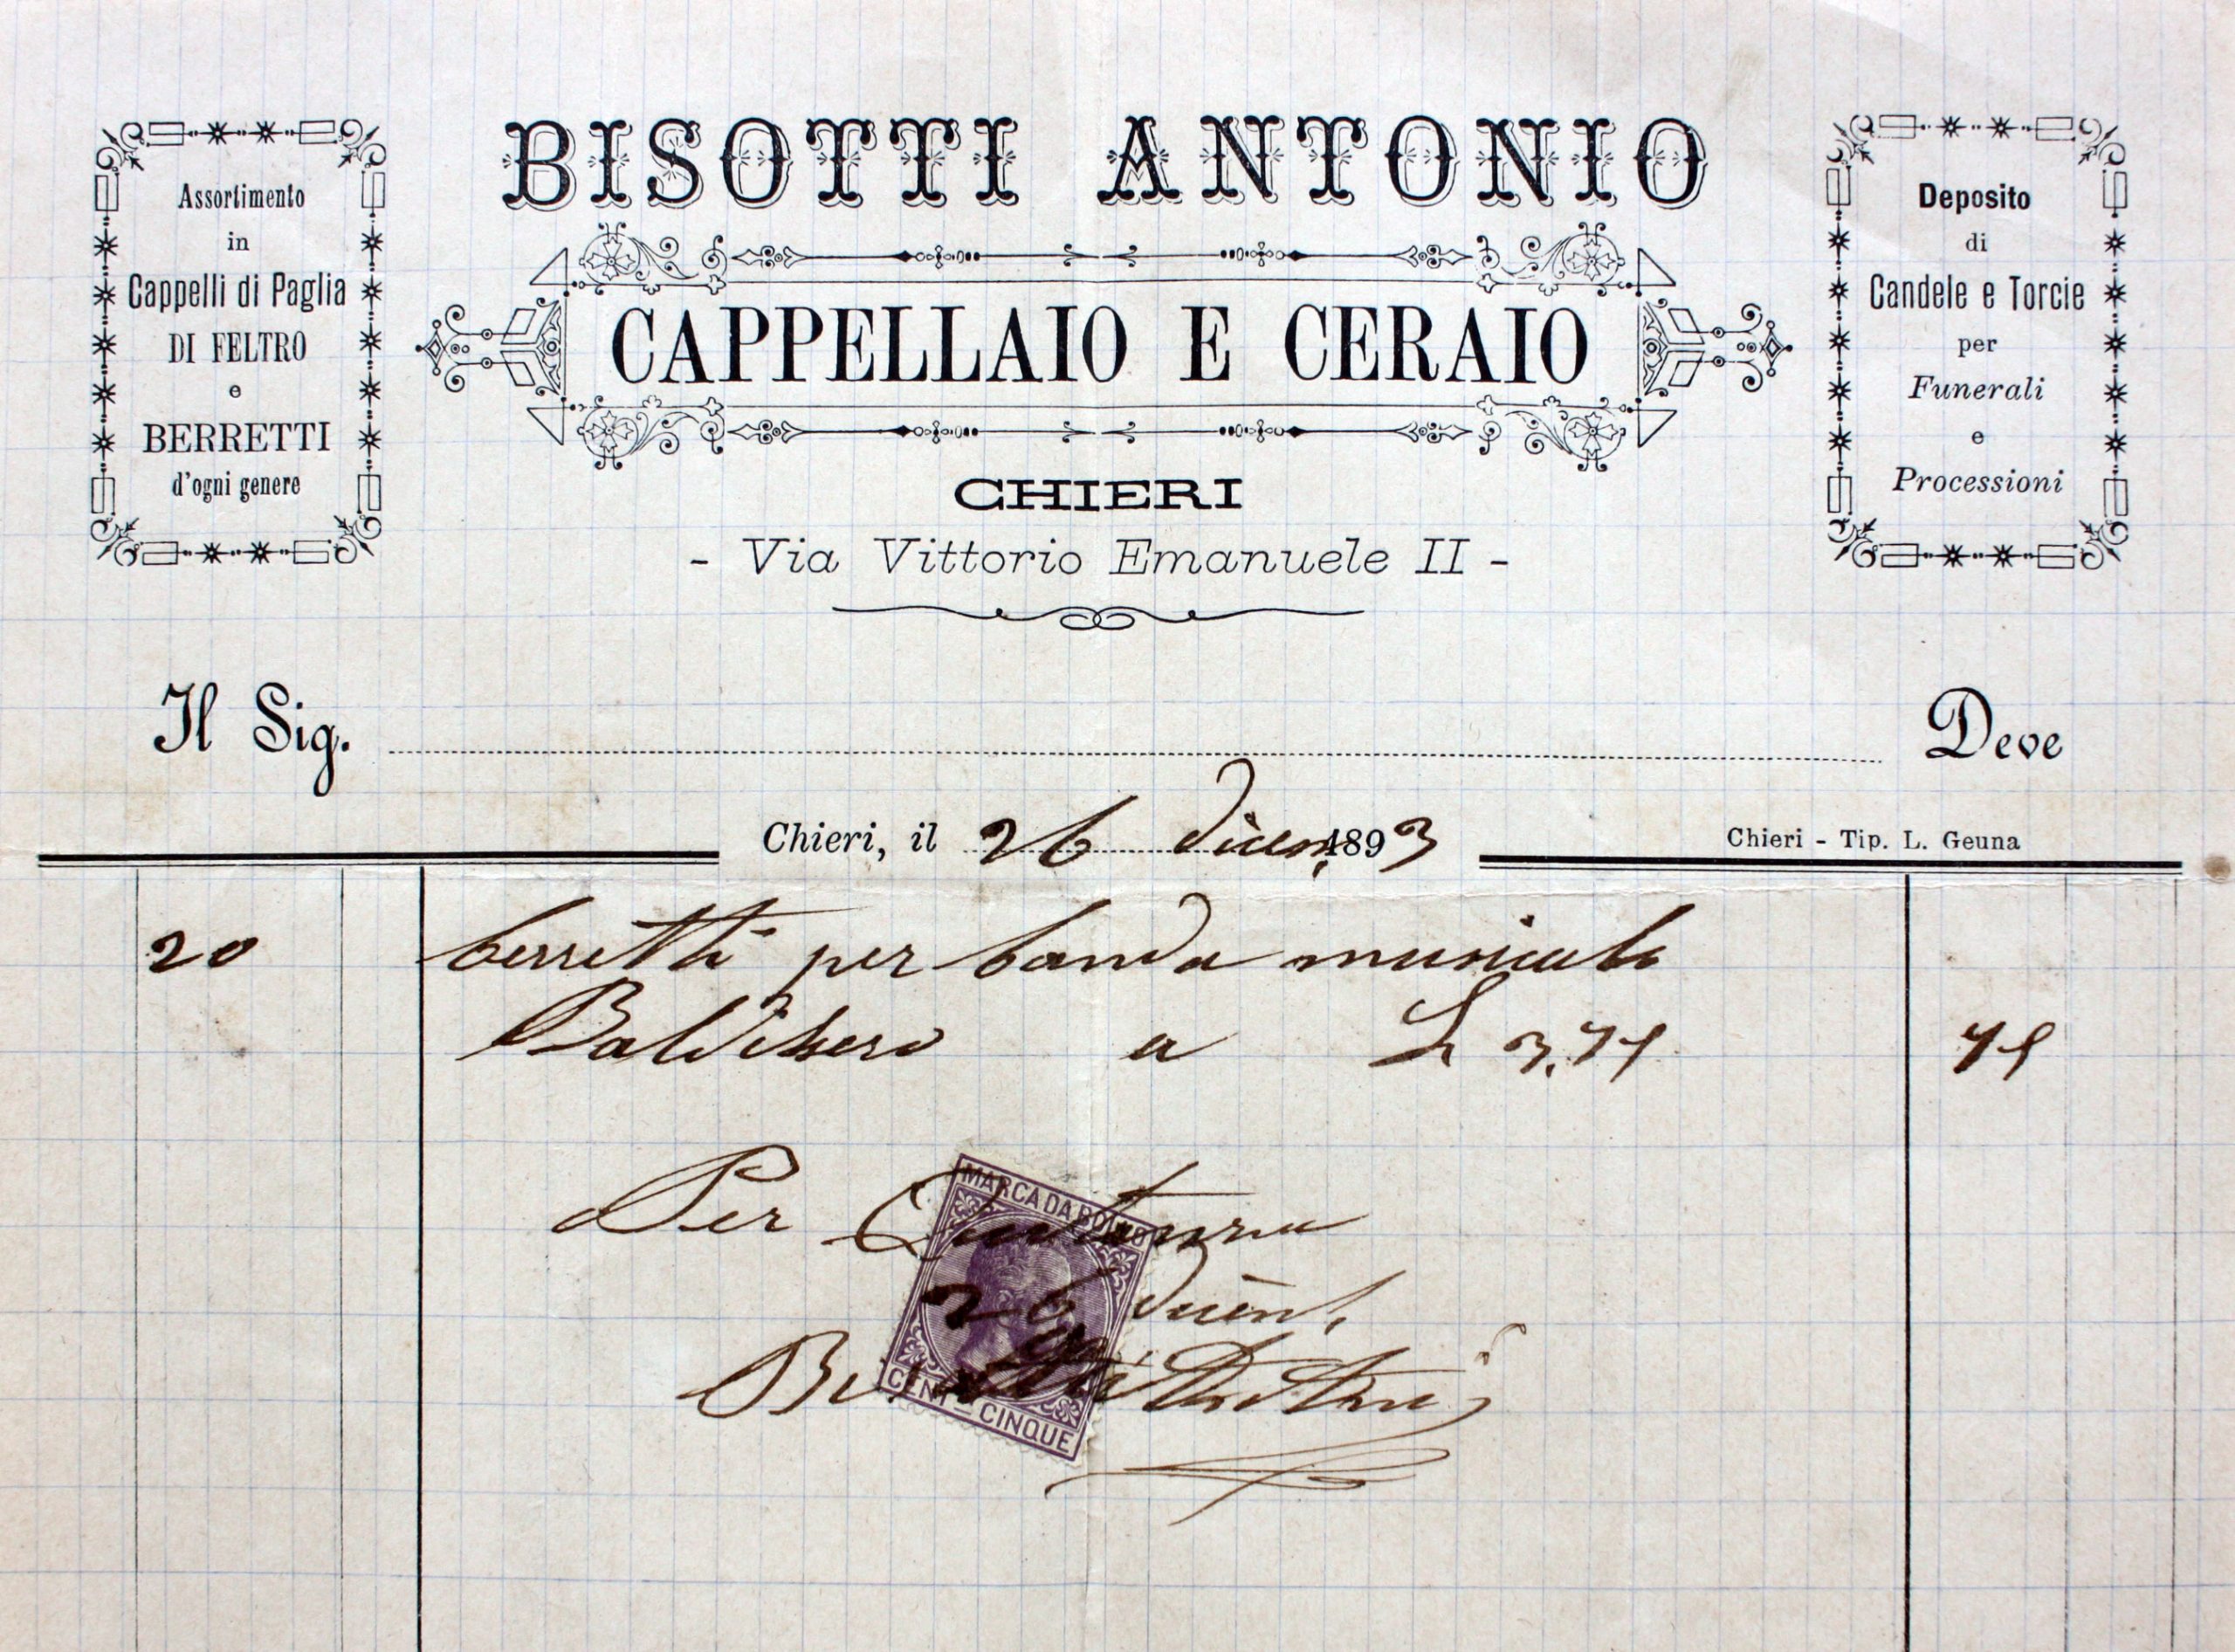 BISOTTI ANTONIO
Assortimento
in
Cappelli di Paglia
DI FELTRO
e
BERRETTI
d'ogni genere
CAPPELLAIO E CERAIO
Deposito
di
Candele e Torcie
per
Funerali
e
Processioni
CHIERI
- Via Vittorio Emanuele II -
Il Sig. Deve
Chieri, il 26 dicem. 1893
Chieri - Tip. L. Geuna
20 berretti per banda musicale
Baldissero a L 3.75 75
Per Quitanza
26 dicemb.
Bisotti Antonio
MARCA DA BOLLO
CENT - CINQUE